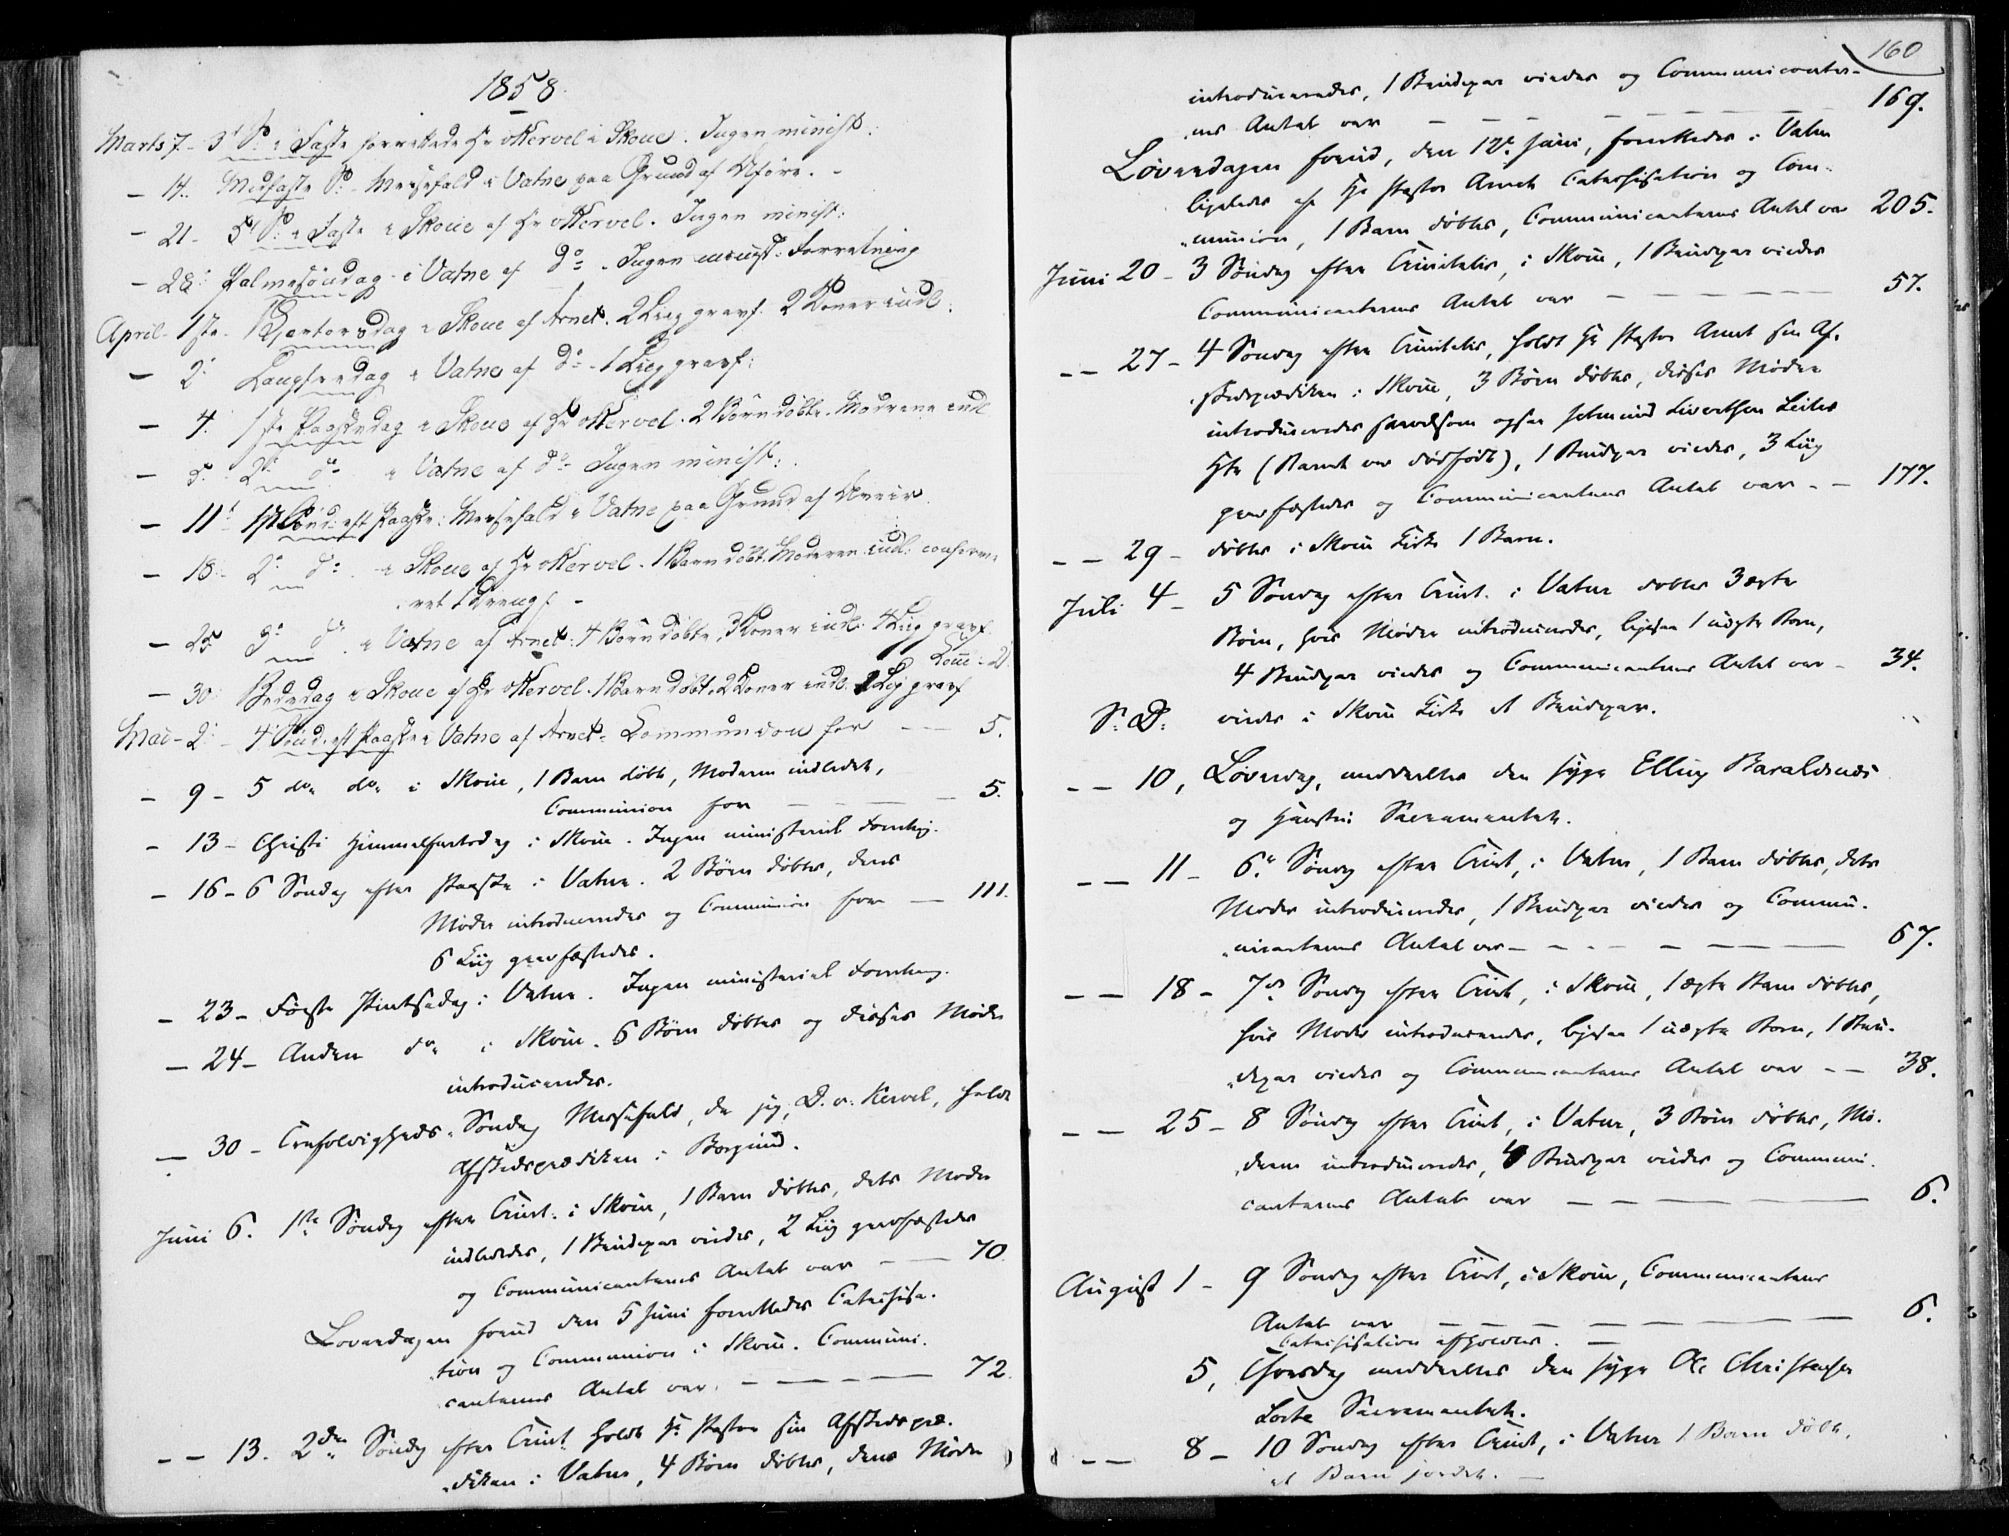 1858.
Marts 7 - 3d S: i Faste forrettede Hr v Kervel i Skoue. Ingen minist:
- 14. Midfaste S: - Messefald i Vatne paa Grund af Uføre. -
- 21 - 5t S: i Faste i Skoue af Hr v Kervel. Ingen minist:
- 28: Palmesöndag i Vatne af do. Ingen minist: Forretning
April 1ste Skjertorsdag i Skoue af Arnet. 2 Liig gravf. 2 Koner indl:
- 2: Langfredag i Vatne af do - 1 Liig gravf:
- 4: 1ste Paaskedag i Skoue af Hr v Kervel. 2 Börn döbte. Mödrene indl
- 5: 2: do i Vatne af do Ingen minist:
- 11t 1st Sönd: eft Paaske: Messefald i Vatne paa Grund af Uveir.
- 18: 2: do i Skoue af Hr v Kervel. 1 Barn döbt. Moderen indl: confirme-
ret 1 Dreng. -
- 25 3: do i Vatne af Arnet: 4 Börn döbte, 3 Koner indl: 4 Liig gravf.
- 30: Bededag i Skoue af Hr v Kervel. 1 Barn döbt. 2 Koner indl. 2 Liig gravf
Mai - 2: - 4 Sönd: eft Paaske i Vatne af Arnet. Kommunion for — 5.
- 9 - 5 do do i Skoue, 1 Barn döbt, Moderen indledet,
Communion for — 5.
- 13 - Christi Himmelfartsdag i Skoue. Ingen ministeriel Forretng.
- 16 - 6 Söndag efter Paaske i Vatne. 2 Börn döbtes, deres
Mödre introduceredes og Communion for — 111.
6 Liig gravfæstedes.
- 23 - Første Pintsedag i Vatne. Ingen ministeriel Forretning.
- 24 - Anden do i Skoue. 6 Börn döbtes og disses Mödre
introduceredes.
- 30 - Trefoldigheds-Söndag Messefald, da jeg, D. v. Kervel, holdt
Afskedsprædiken i Borgund.
Juni 6. 1ste Söndag efter Trinit. i Skoue, 1 Barn döbtes, dets Moder
indlededes, 1 Brudepar viedes, 2 Liig gravfæstedes
og Communicanternes Antal var — 70.
Löverdagen forud den 5 Juni forrettedes Catechisa-
tion og Communion i Skoue. Communi-
canternes Antal var — 72.
- - 13. 2den Söndag efter Trinit. holdt Hr Pastor sin Afskedspræ-
diken i Vatne, 4 Börn döbtes, deres Mödre
160
introduceredes, 1 Brudepar viedes og Communicanter-
nes Antal var — 169.
Löverdagen forud, den 12te Juni, forrettedes i Vatne
ligeledes af Hr Pastor Arnet Catechisation og Com-
munion, 1 Barn döbtes, Communicanternes Antal var 205.
Juni 20 - 3 Söndag efter Trinitatis, i Skoue, 1 Brudepar viedes
Communicanternes Antal var — 57.
- - 27 - 4 Söndag efter Trinitatis, holdt Hr Pastor Arnet sin Af-
skedsprædiken i Skoue, 3 Börn döbtes, disses Mödre
introduceredes
(Barnet var dödfödt), 1 Brudepar viedes, 3 Liig
gravfæstedes og Communicanternes Antal var - - 177.
- - 29 - döbtes i Skoue Kirke 1 Barn.
Juli 4 - 5 Söndag efter Trinit. i Vatne döbtes 3 ægte
Börn, hvis Mödre introduceredes, ligesaa 1 uægte Barn,
4 Brudepar viedes og Communicanternes Antal var - 34.
S: D: viedes i Skoue Kirke et Brudepar.
- - 10, Löverdag, meddeeltes den syge Elling Baraldsnæs
og Hustru Sacramentet.
- - 11 - 6te Söndag efter Trinit, i Vatne, 1 Barn döbtes, dets
Moder introduceredes, 1 Brudepar viedes og Commu-
nicanternes Antal var — 67.
- - 18 - 7de Söndag efter Trinit, i Skoue, 1 ægte Barn döbtes,
hvis Moder introduceredes, ligesaa 1 uægte Barn, 1 Bru-
depar viedes og Communicanternes Antal var - - 38.
- - 25 - 8 Söndag efter Trinit, i Vatne, 3 Börn döbtes, Mö-
drene introduceredes, 4 Brudepar viedes og Communi-
canternes Antal var — 6.
August 1 - 9 Söndag efter Trinit, i Skoue, Communicanternes
Antal var — 6.
Catechisation afholdtes. —
5, Thorsdag meddeeltes den syge Ole Christensen
Sacramentet.
- - 8 - 10 Söndag efter Trinit, i Vatne 1 Barn döbt,
et Barn jordet. —